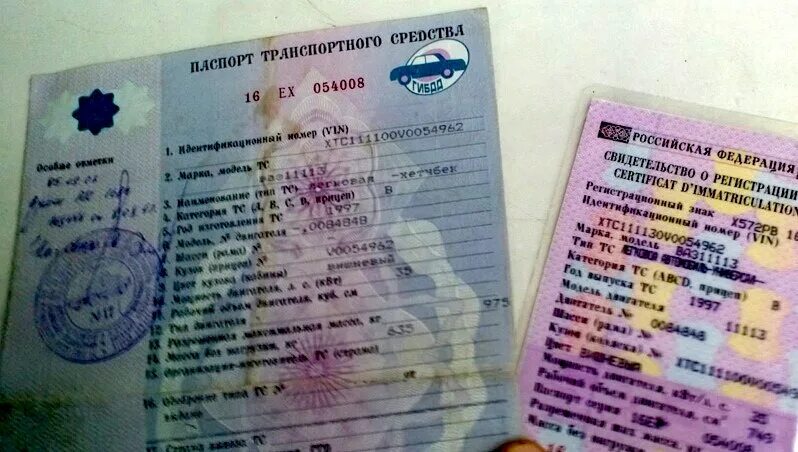 ПАСПОРТ ТРАНСПОРТНОГО СРЕДСТВА
16 ЕХ 054008
ГИБДД
Особые отметки
1. Идентификационный номер (VIN) XTC111100V0054962
2. Марка, модель ТС ВАЗ11113
3. Наименование (тип ТС) легковая -хетчбек
4. Категория ТС (А, В, С, D, прицеп) В
5. Год изготовления ТС 1997
6. Модель, № двигателя -,0084848
7. Шасси (рама) №
8. Кузов (прицеп) № V0054962
9. Цвет кузова (кабины) вишневый
10. Мощность двигателя, л. с. (кВт) 35
11. Рабочий объем двигателя, куб. см
12. Тип двигателя
13. Разрешенная максимальная масса, кг 975
14. Масса без нагрузки, кг 635
15. Организация-изготовитель ТС (страна)
16. Одобрение типа ТС № от
выдано
17. Страна вывоза ТС
РОССИЙСКАЯ ФЕДЕРАЦИЯ
СВИДЕТЕЛЬСТВО О РЕГИСТРАЦИИ
CERTIFICAT D'IMMATRICULATION
Регистрационный знак Х572РВ 16
Идентификационный номер (VIN)
XTC111130V0054962
Марка, модель ВАЗ11113
Тип ТС
Категория ТС (ABCD, прицеп) В
Год выпуска ТС 1997
Модель двигателя 11113
Двигатель № 0084848
Шасси (рама) №
Кузов (коляска) № XTC111100V0054
Цвет ВИШНЕВЫЙ
Мощность двигателя, кВт/л. с. 35
Рабочий объем двигателя, см³ 749
Паспорт серия 16ЕХ 054008
Разрешенная max масса, кг
Масса без нагрузки